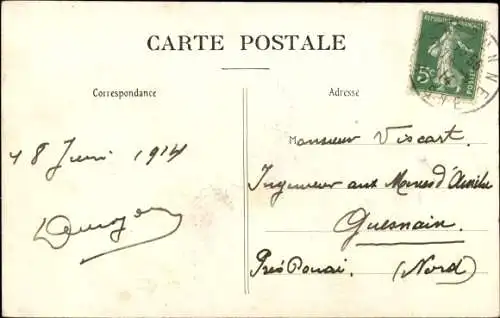 CARTE POSTALE
RÉPUBLIQUE FRANÇAISE
5c
POSTES
Correspondance
Adresse
18 Juin 1914
Monsieur Viscart.
Ingenieur aux Mines d'Aniche
Guesnain.
Près Douai. (Nord)